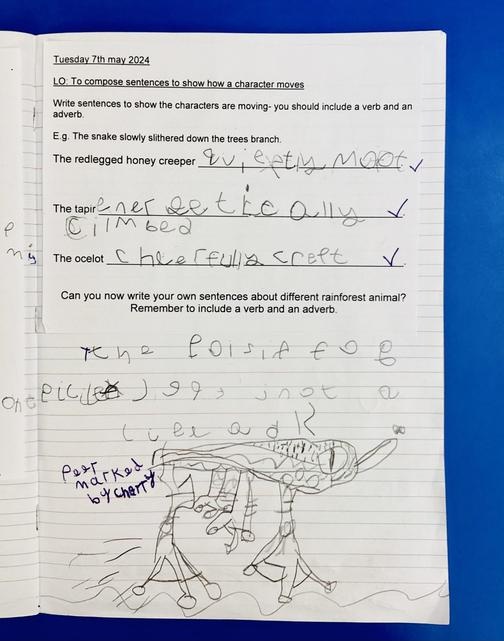 Tuesday 7th may 2024
LO: To compose sentences to show how a character moves
Write sentences to show the characters are moving- you should include a verb and an
adverb.
E.g. The snake slowly slithered down the trees branch.
The redlegged honey creeper quieptly moot
The tapir energetically
cilmbed
The ocelot cheerfully creft
Can you now write your own sentences about different rainforest animal?
Remember to include a verb and an adverb.
the Poisit fog
inot a
Peer
marked
by cherry